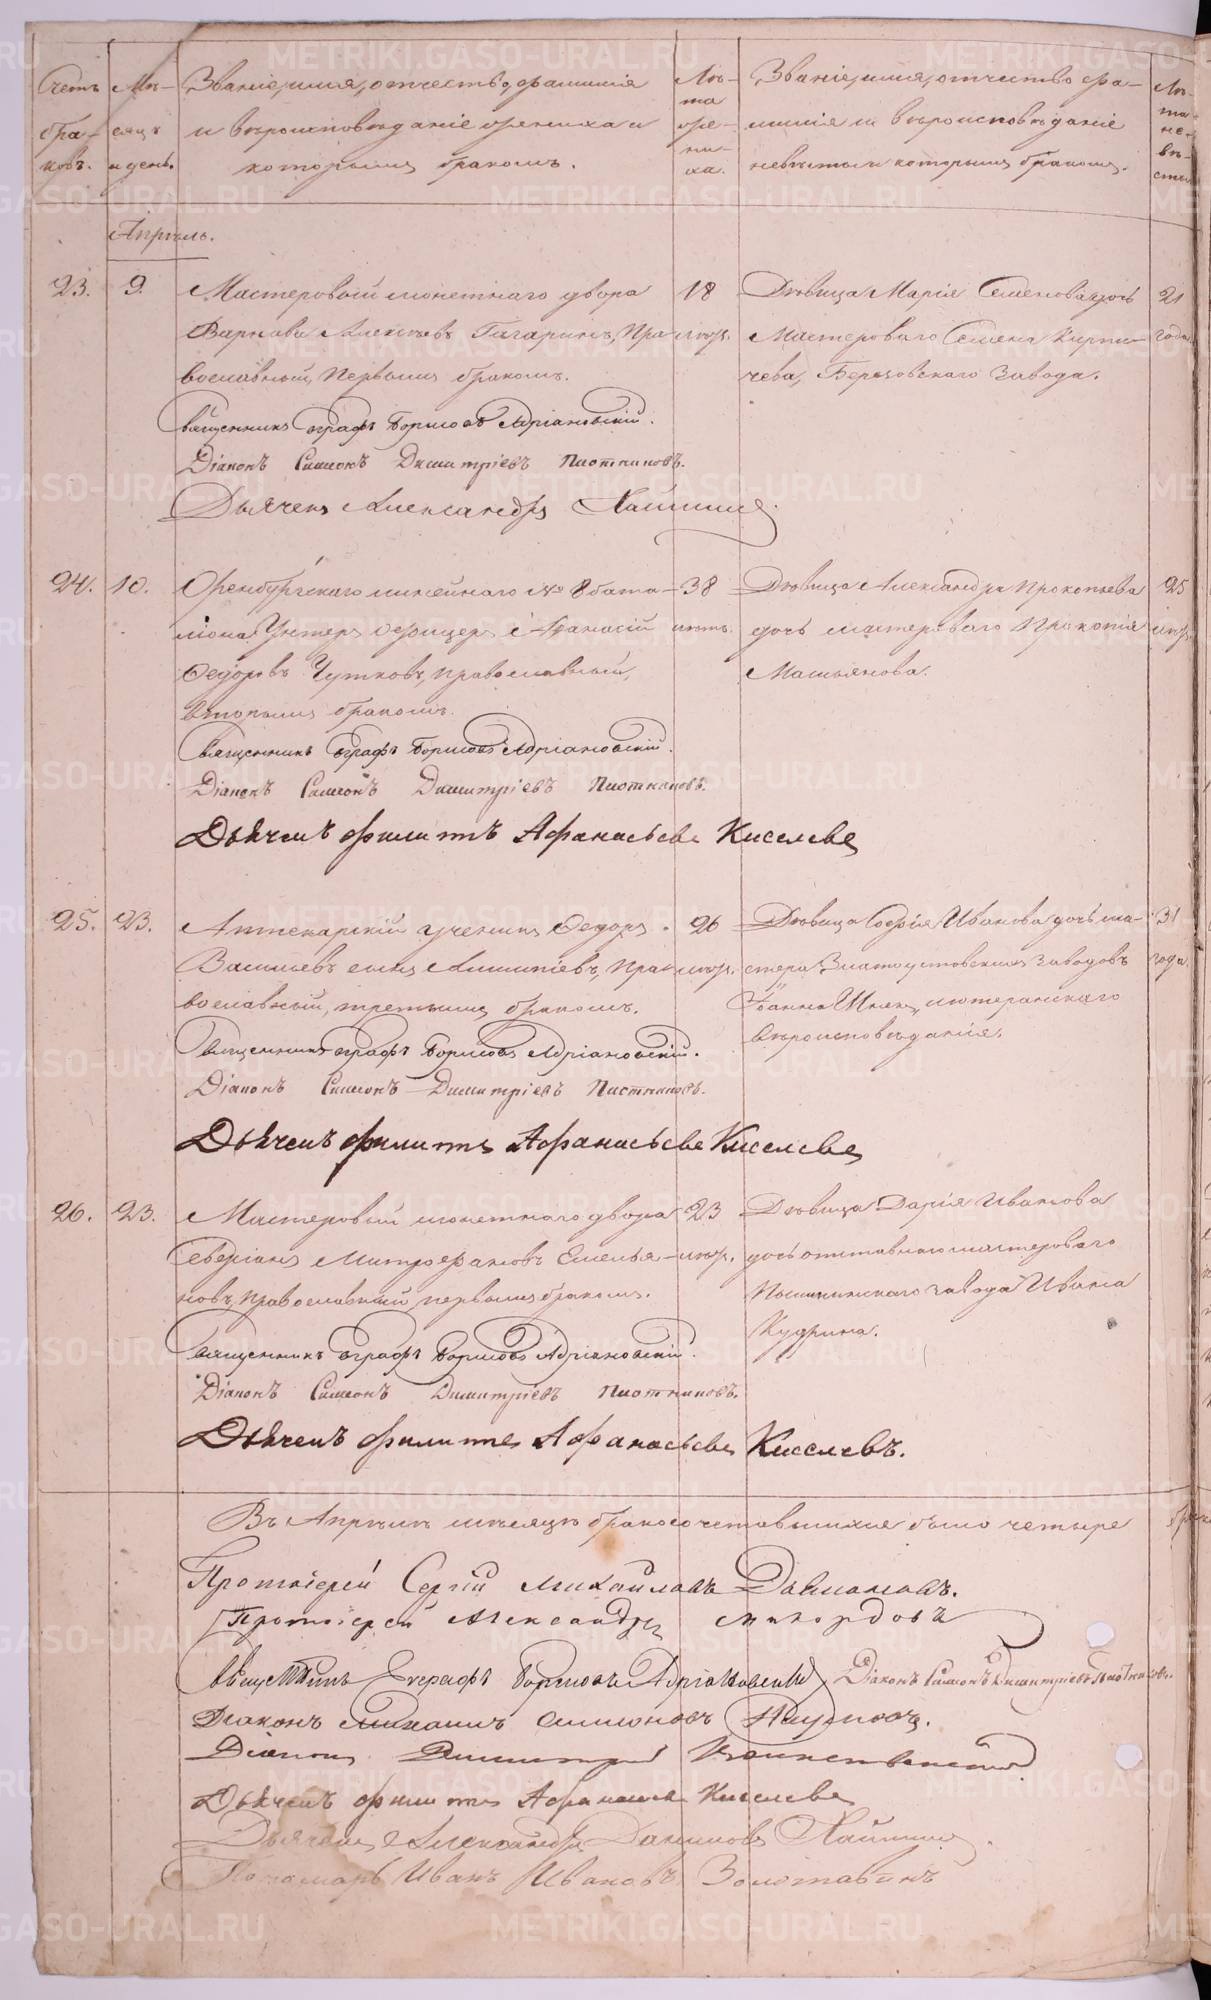 Счетъ браковъ.
Мѣсяцъ и день.
Званіе, имя, отчество, фамилія
и вѣроисповѣданіе жениха и
которымъ бракомъ.
Лѣта жениха.
Званіе, имя, отчество фа-
милія и вѣроисповѣданіе
невѣсты и которымъ бракомъ.
Лѣта невѣсты
Апрѣль.
23. 9. Мастеровый монетнаго двора 18 Дѣвица Марія Семенова дочь 21
Варнава Алексѣевъ Гагаринъ, Пра- лѣтъ. Мастероваго Семена Кирпи- года
вославный, Первымъ бракомъ. чева, Березовскаго Завода.
Священникъ Евграфъ Борисовъ Адріановскій.
Діаконъ Симеонъ Димитріевъ Плотниковъ.
Дьячекъ Александръ
24. 10. Оренбургскаго линейнаго № 8 бата- 38 Дѣвица Александра Прокопьева 25
ліона Унтеръ офицеръ Афанасій лѣтъ. дочь мастероваго Прокопія лѣтъ.
Федоровъ Чутковъ, православный,
вторымъ бракомъ.
Священникъ Евграфъ Борисовъ Адріановскій.
Діаконъ Симеонъ Димитріевъ Плотниковъ.
Дьячекъ Филиппъ Афанасьевъ Киселевъ
25. 23. Аптекарскій ученикъ Федоръ 26 Дѣвица Софія Иванова дочь ма- 31
Васильевъ сынъ прав- лѣтъ. стера Златоустовскихъ Заводовъ года
вославный, третьимъ бракомъ. лютеранскаго
вѣроисповѣданія.
Священникъ Евграфъ Борисовъ Адріановскій.
Діаконъ Симеонъ Димитріевъ Плотниковъ.
Дьячекъ Филиппъ Афанасьевъ Киселевъ
26. 23. Мастеровый монетнаго двора 23 Дѣвица Дарія Иванова
Северіанъ Митрофановъ Емелья- лѣтъ. дочь отставнаго мастероваго
новъ, православный, первымъ бракомъ. Пышминскаго завода Ивана
Кудрина.
Священникъ Евграфъ Борисовъ Адріановскій.
Діаконъ Симеонъ Димитріевъ Плотниковъ.
Дьячекъ Филиппъ Афанасьевъ Киселевъ.
Въ Апрѣлѣ мѣсяцѣ бракосочетавшихся было четыре
Протоіерей Сергій Михайловъ
Протоіерей Александръ
Священникъ Евграфъ Борисовъ Адріановскій Діаконъ Симеонъ Димитріевъ Плотниковъ.
Діаконъ Михаилъ Симоновъ
Діаконъ Димитрій
Дьячекъ Филиппъ Афанасьевъ Киселевъ
Дьячекъ Александръ Даниловъ
Пономарь Иванъ Ивановъ Золотавинъ
METRIKI.GASO-URAL.RU